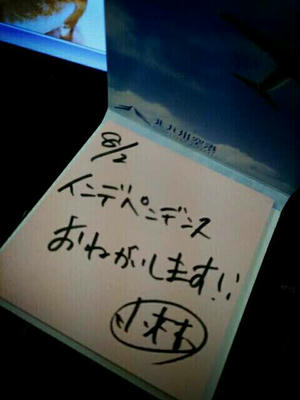 北九州空港
8/2
インデペンデンス
おねがいします!!
小林